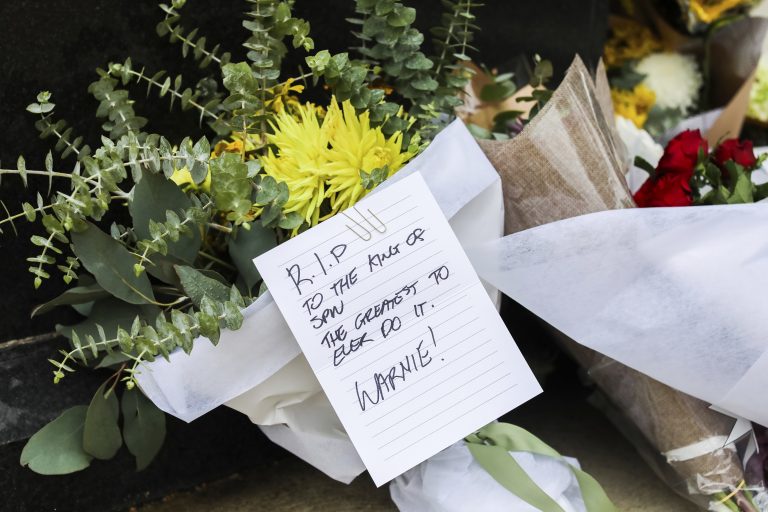 R.I.P
TO THE KING OF
SPIN
THE GREATEST TO
EVER DO IT.
WARNIE!